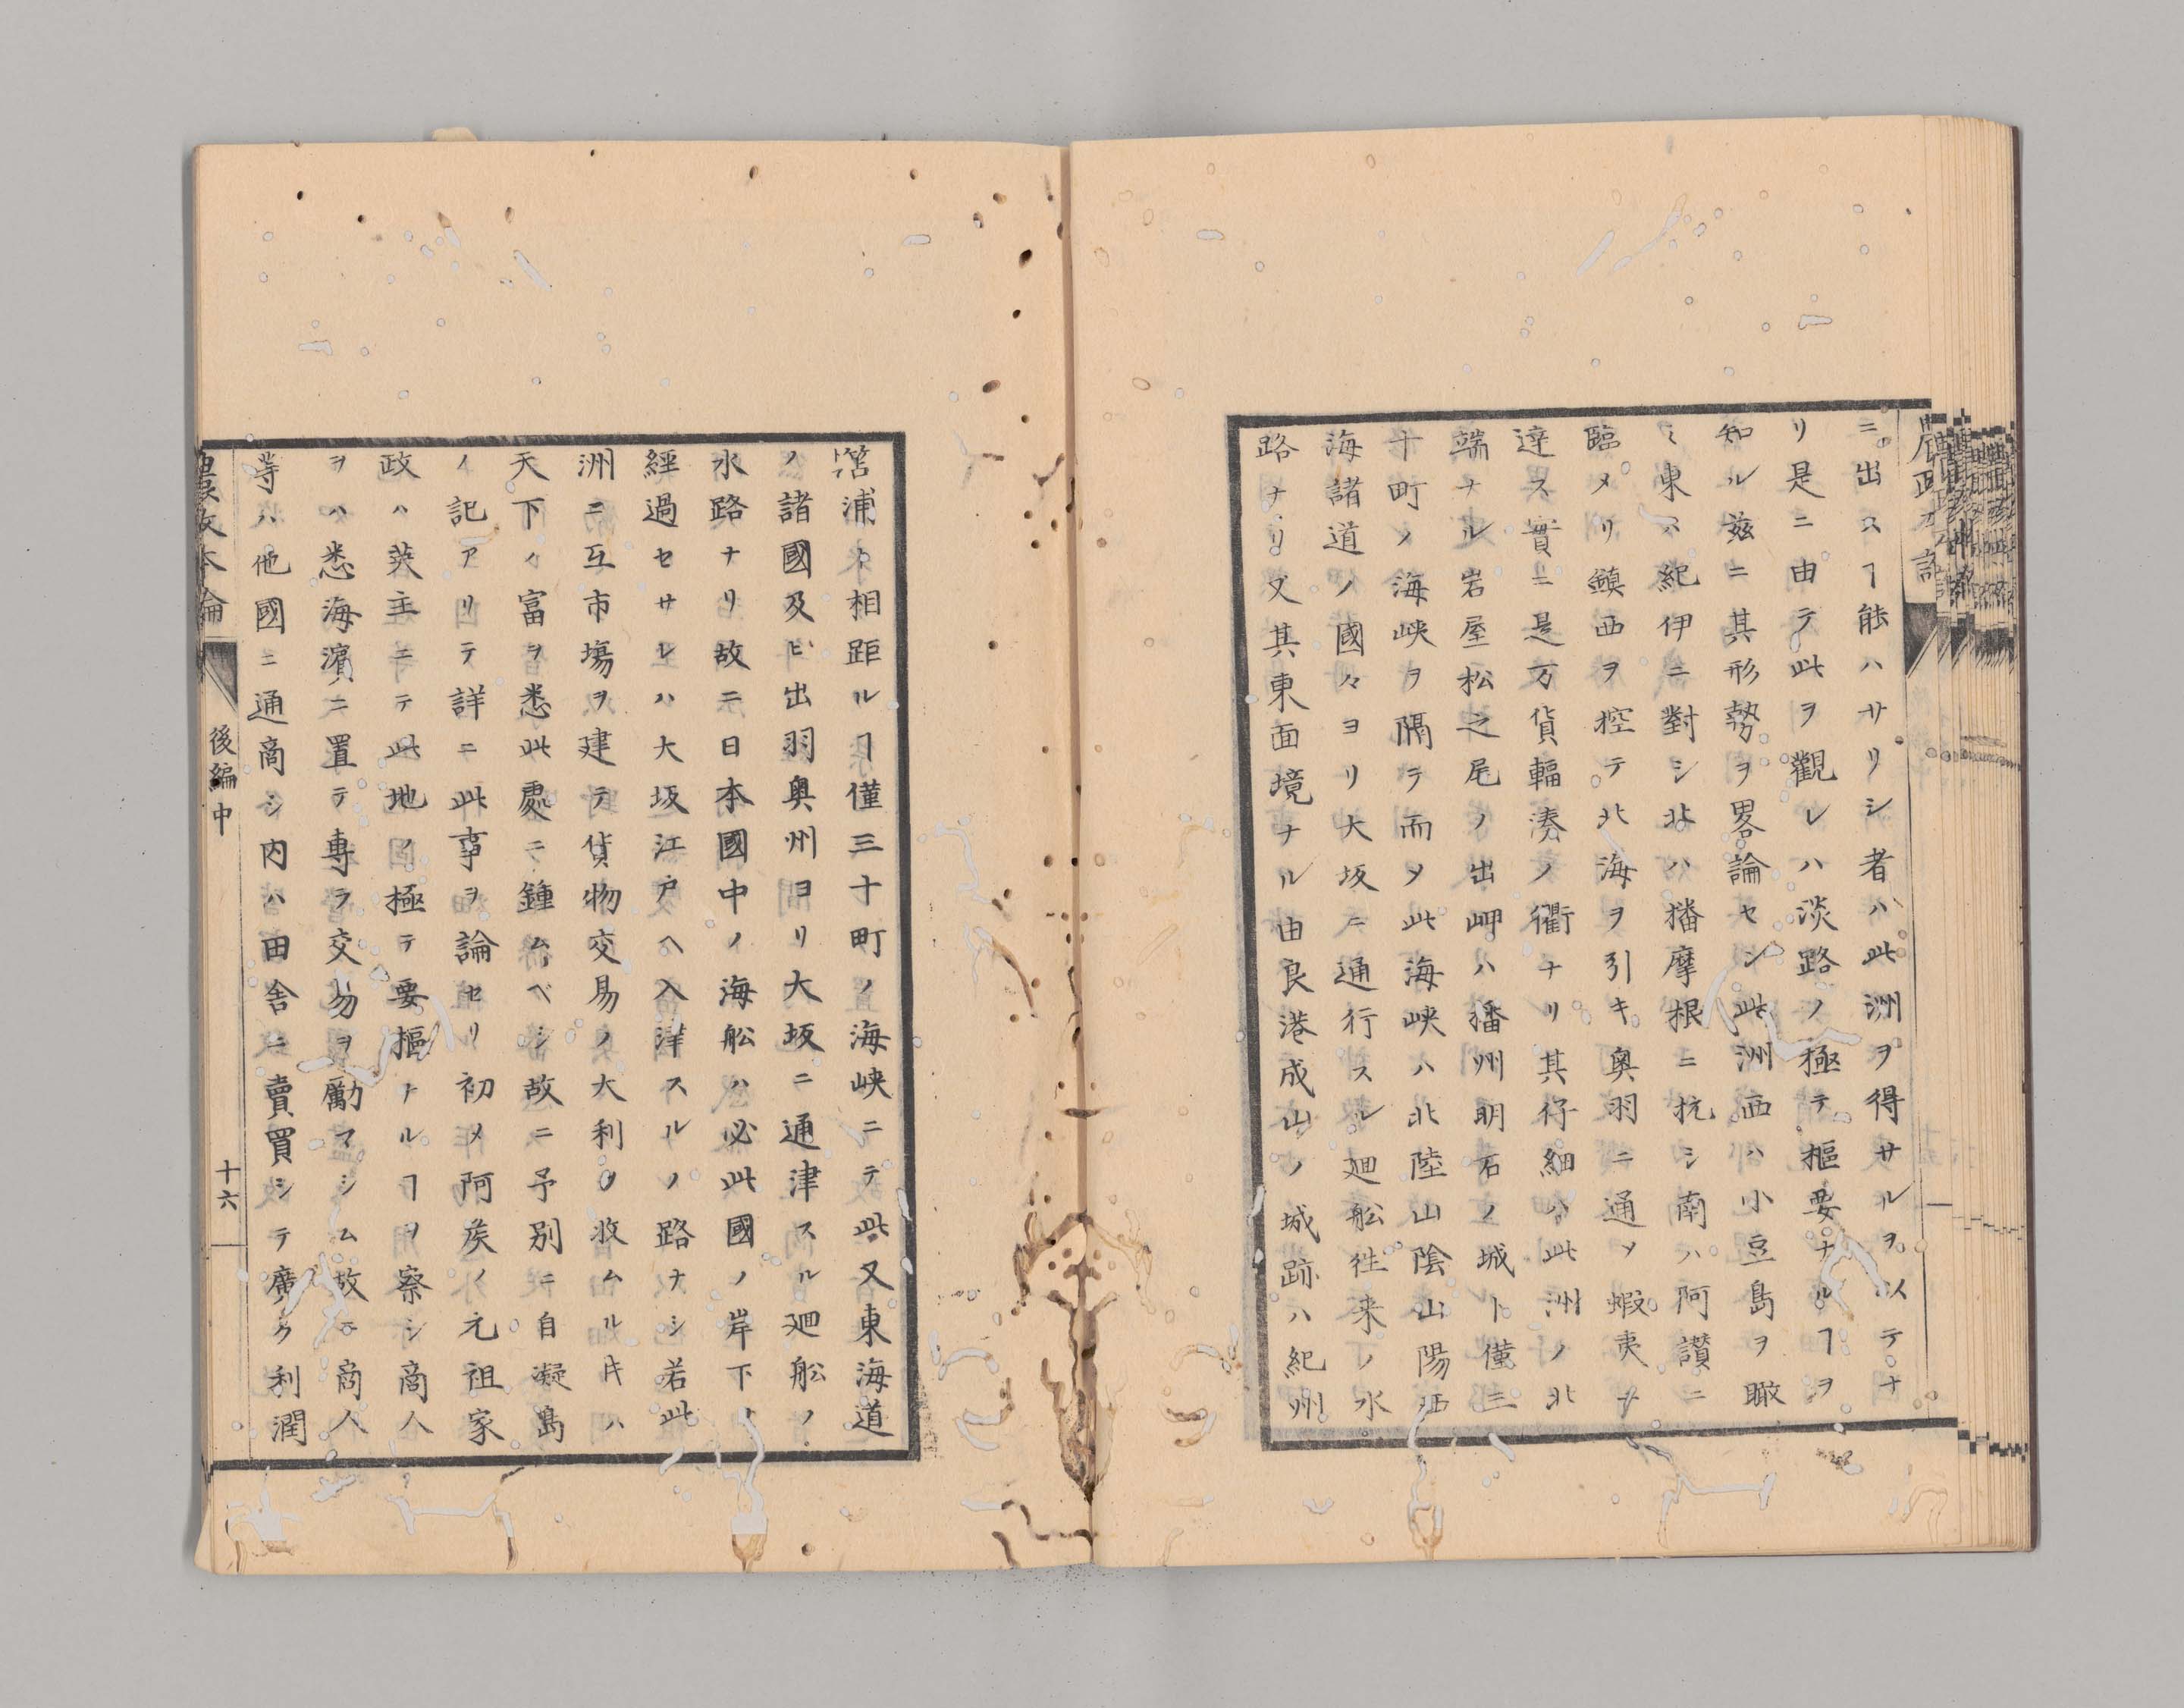 ニ出スヿ能ハサリシ者ハ此洲ヲ得サルヲ以テナ
リ是ニ由テ此ヲ觀レハ淡路ノ極テ樞要ナルヿヲ
知ル玆ニ其形勢ヲ畧論セン此洲西ハ小豆島ヲ瞰
ミ東ハ紀伊ニ對シ北ハ播摩根ニ抗シ南ハ阿讃ニ
臨メリ鎮西ヲ控テ北海ヲ引キ奥羽ニ通メ蝦夷ニ
達ス實ニ是万貨輻湊ノ衢ナリ其仔細ハ此洲ノ北
端ナル岩屋松之尾ノ出岬ハ播州明石ノ城ト僅三
十町ノ海峡ヲ隔テ而メ此海峡ハ北陸山陰山陽西
海諸道ノ國々ヨリ大坂ニ通行スル廻舩徃来ノ水
路ナリ又其東面境ナル由良港成山ノ城跡ハ紀州
浦ト相距ルヿ僅三十町ノ海峡ニテ此又東海道
ノ諸國及ビ出羽奥州ヨリ大坂ニ通津スル廻舩ノ
水路ナリ故ニ日本國中ノ海舩ハ必此國ノ岸下ヲ
經過セサレハ大坂江戸ヘ入津スルノ路ナシ若此
洲ニ互市塲ヲ建テ貨物交易ノ大利ヲ收ムル𪜈ハ
天下ノ富ヲ悉此處ニ鍾ムベシ故ニ予別ニ自凝島
ノ記アリテ詳ニ此事ヲ論セリ初メ阿矦ノ元祖家
政ハ英主ニテ此地ノ極テ要樞ナルヿヲ察シ商人
ヲハ悉海濵ニ置テ專ラ交易ヲ勵マシム故ニ商人
等ハ他國ニ通商シ内ハ田舎ニ賣買シテ廣ク利潤
農政本論
後編中
十六